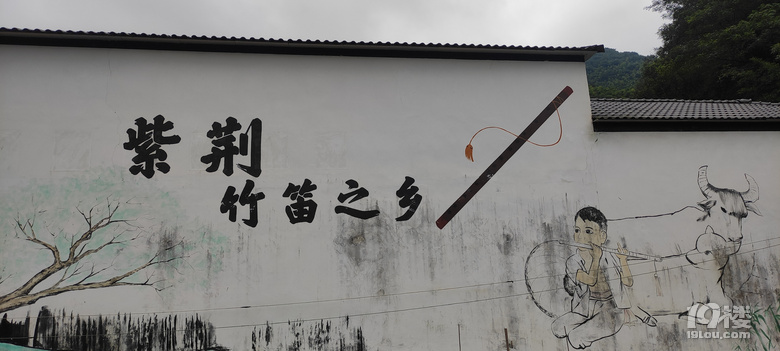 紫荆
竹笛之乡
19楼
19lou.com